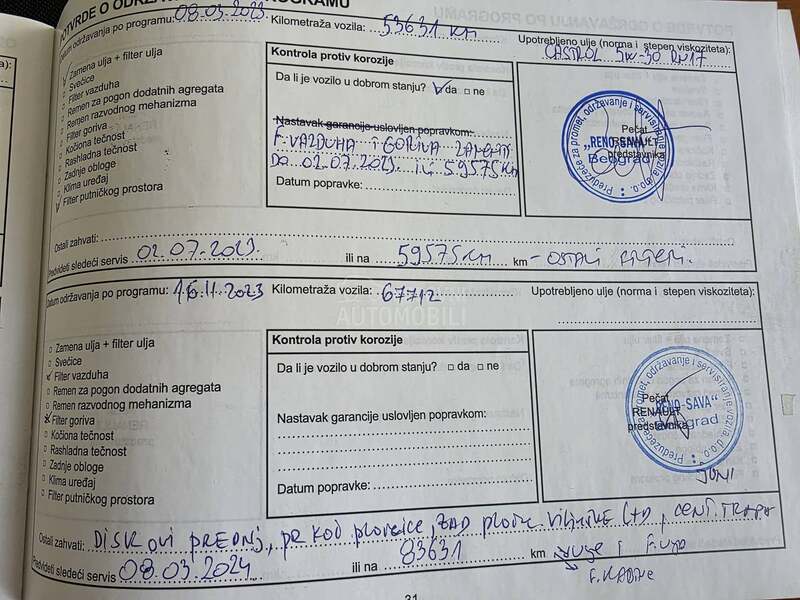 POTVRDE O ODRŽAVANJU PO PROGRAMU
Datum održavanja po programu: 08.03.2023. Kilometraža vozila: 53631 KM
Upotrebljeno ulje (norma i stepen viskoziteta):
CASTROL 5W-30 RN17
Zamena ulja + filter ulja
Svećice
Filter vazduha
Remen za pogon dodatnih agregata
Remen razvodnog mehanizma
Filter goriva
Kočiona tečnost
Rashladna tečnost
Zadnje obloge
Klima uređaj
Filter putničkog prostora
Kontrola protiv korozije
Da li je vozilo u dobrom stanju? da ne
Nastavak garancije uslovljen popravkom:
F. VAZDUHA I GORIVA ZAMENITI
DO 02.07.2023. ILI 59575 KM
Datum popravke:
Preduzeće za promet, održavanje i servisiranje vozila d.o.o.
"RENO-SAVA"
Beograd
Pečat
RENAULT
predstavnika
Ostali zahvati:
Predvideti sledeći servis 02.07.2023. ili na 59575 KM km - OSTALI FILTERI.
Datum održavanja po programu: 16.11.2023 Kilometraža vozila: 67712
Upotrebljeno ulje (norma i stepen viskoziteta):
Zamena ulja + filter ulja
Svećice
Filter vazduha
Remen za pogon dodatnih agregata
Remen razvodnog mehanizma
Filter goriva
Kočiona tečnost
Rashladna tečnost
Zadnje obloge
Klima uređaj
Filter putničkog prostora
Kontrola protiv korozije
Da li je vozilo u dobrom stanju? da ne
Nastavak garancije uslovljen popravkom:
Datum popravke:
Preduzeće za promet, održavanje i servisiranje vozila d.o.o.
"RENO-SAVA"
Beograd
Pečat
RENAULT
predstavnika
Ostali zahvati: DISKOVI PREDNJI, PR KOČ PLOČICE, ZAD PLOČ.
Predvideti sledeći servis 08.03.2024 ili na 83631 km
F. KABINE
31
AUTOMOBILI